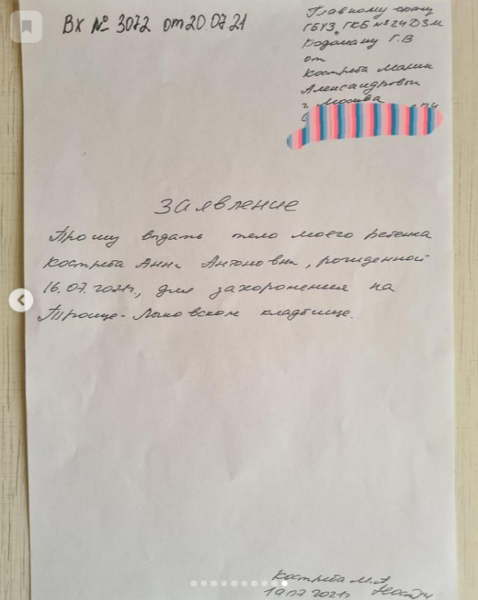 Вх № 3072 от 20.07.21
Главному врачу
ГБУЗ ГКБ №24 ДЗМ
Водолажу Г.В
от
Костреба Марии
Александровой
г. Москва
Заявление
Прошу выдать тело моего ребенка
Костреба Анны Антоновны, рожденной
16.07.2021г., для захоронения на
Троице-Лыковском кладбище.
Костреба М.А
19.07.2021г